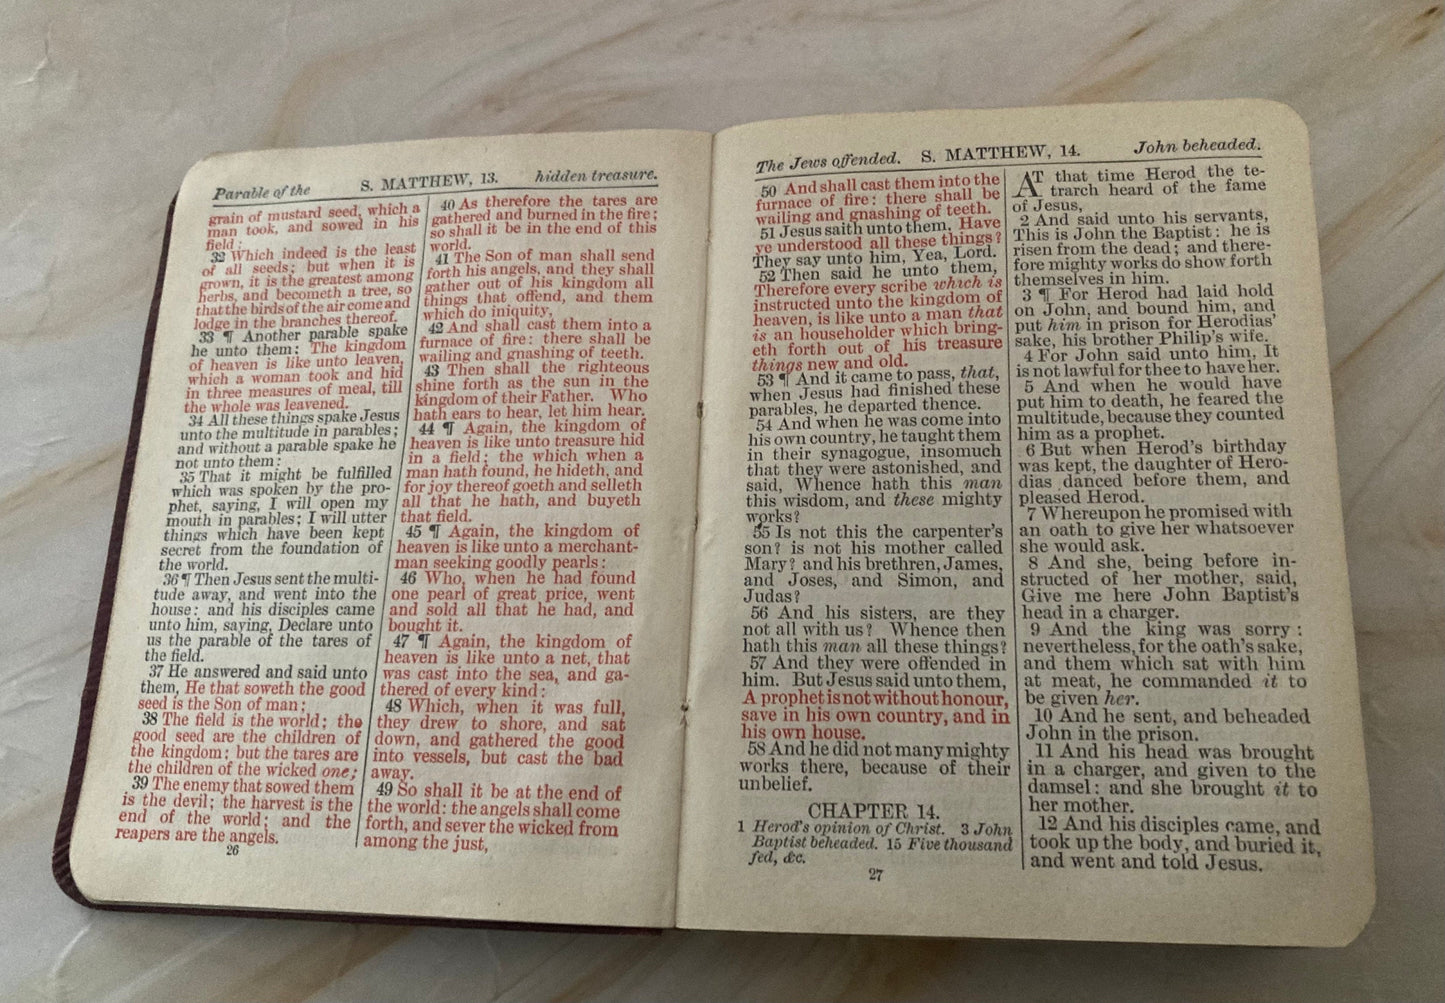 Parable of the S. MATTHEW, 13. hidden treasure.
grain of mustard seed, which a
man took, and sowed in his
field:
32 Which indeed is the least
of all seeds; but when it is
grown, it is the greatest among
herbs, and becometh a tree, so
that the birds of the air come and
lodge in the branches thereof.
33 ¶ Another parable spake
he unto them: The kingdom
of heaven is like unto leaven,
which a woman took and hid
in three measures of meal, till
the whole was leavened.
34 All these things spake Jesus
unto the multitude in parables;
and without a parable spake he
not unto them:
35 That it might be fulfilled
which was spoken by the pro-
phet, saying, I will open my
mouth in parables; I will utter
things which have been kept
secret from the foundation of
the world.
36 ¶ Then Jesus sent the multi-
tude away, and went into the
house: and his disciples came
unto him, saying, Declare unto
us the parable of the tares of
the field.
37 He answered and said unto
them, He that soweth the good
seed is the Son of man;
38 The field is the world; the
good seed are the children of
the kingdom; but the tares are
the children of the wicked one;
39 The enemy that sowed them
is the devil; the harvest is the
end of the world; and the
reapers are the angels.
26
40 As therefore the tares are
gathered and burned in the fire;
so shall it be in the end of this
world.
41 The Son of man shall send
forth his angels, and they shall
gather out of his kingdom all
things that offend, and them
which do iniquity,
42 And shall cast them into a
furnace of fire: there shall be
wailing and gnashing of teeth.
43 Then shall the righteous
shine forth as the sun in the
kingdom of their Father. Who
hath ears to hear, let him hear.
44 ¶ Again, the kingdom of
heaven is like unto treasure hid
in a field; the which when a
man hath found, he hideth, and
for joy thereof goeth and selleth
all that he hath, and buyeth
that field.
45 ¶ Again, the kingdom of
heaven is like unto a merchant-
man seeking goodly pearls:
46 Who, when he had found
one pearl of great price, went
and sold all that he had, and
bought it.
47 ¶ Again, the kingdom of
heaven is like unto a net, that
was cast into the sea, and ga-
thered of every kind:
48 Which, when it was full,
they drew to shore, and sat
down, and gathered the good
into vessels, but cast the bad
away.
49 So shall it be at the end of
the world: the angels shall come
forth, and sever the wicked from
among the just,
The Jews offended. S. MATTHEW, 14. John beheaded.
50 And shall cast them into the
furnace of fire: there shall be
wailing and gnashing of teeth.
51 Jesus saith unto them, Have
ye understood all these things?
They say unto him, Yea, Lord.
52 Then said he unto them,
Therefore every scribe which is
instructed unto the kingdom of
heaven, is like unto a man that
is an householder which bring-
eth forth out of his treasure
things new and old.
53 ¶ And it came to pass, that,
when Jesus had finished these
parables, he departed thence.
54 And when he was come into
his own country, he taught them
in their synagogue, insomuch
that they were astonished, and
said, Whence hath this man
this wisdom, and these mighty
works?
55 Is not this the carpenter's
son? is not his mother called
Mary? and his brethren, James,
and Joses, and Simon, and
Judas?
56 And his sisters, are they
not all with us? Whence then
hath this man all these things?
57 And they were offended in
him. But Jesus said unto them,
A prophet is not without honour,
save in his own country, and in
his own house.
58 And he did not many mighty
works there, because of their
unbelief.
CHAPTER 14.
1 Herod's opinion of Christ. 3 John
Baptist beheaded. 15 Five thousand
fed, &c.
27
AT that time Herod the te-
trarch heard of the fame
of Jesus,
2 And said unto his servants,
This is John the Baptist: he is
risen from the dead; and there-
fore mighty works do show forth
themselves in him.
3 ¶ For Herod had laid hold
on John, and bound him, and
put him in prison for Herodias'
sake, his brother Philip's wife.
4 For John said unto him, It
is not lawful for thee to have her.
5 And when he would have
put him to death, he feared the
multitude, because they counted
him as a prophet.
6 But when Herod's birthday
was kept, the daughter of Hero-
dias danced before them, and
pleased Herod.
7 Whereupon he promised with
an oath to give her whatsoever
she would ask.
8 And she, being before in-
structed of her mother, said,
Give me here John Baptist's
head in a charger.
9 And the king was sorry:
nevertheless, for the oath's sake,
and them which sat with him
at meat, he commanded it to
be given her.
10 And he sent, and beheaded
John in the prison.
11 And his head was brought
in a charger, and given to the
damsel: and she brought it to
her mother.
12 And his disciples came, and
took up the body, and buried it,
and went and told Jesus.